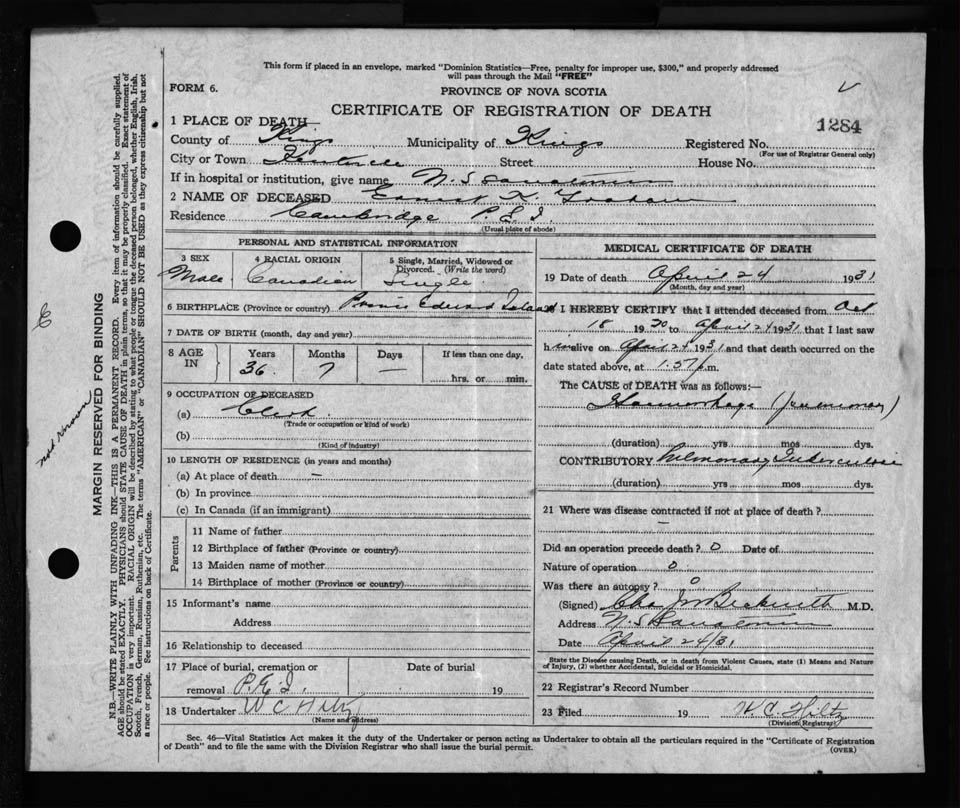 This form if placed in an envelope, marked "Dominion Statistics—Free, penalty for improper use, $300," and properly addressed
will pass through the Mail "FREE"
FORM 6.
PROVINCE OF NOVA SCOTIA
CERTIFICATE OF REGISTRATION OF DEATH
1284
1 PLACE OF DEATH—
County of Kings Municipality of Kings Registered No.
(For use of Registrar General only)
City or Town Kentville Street House No.
If in hospital or institution, give name N. S. Sanatorium
2 NAME OF DECEASED Ernest K. Graham
Residence Cambridge P.E.I.
(Usual place of abode)
PERSONAL AND STATISTICAL INFORMATION
3 SEX
Male
4 RACIAL ORIGIN
Canadian
5 Single, Married, Widowed or
Divorced. (Write the word)
Single
6 BIRTHPLACE (Province or country) Prince Edward Island
7 DATE OF BIRTH (month, day and year)
8 AGE
IN
Years
36
Months
7
Days
—
If less than one day,
hrs. or min.
9 OCCUPATION OF DECEASED
(a) Clerk
(Trade or occupation or kind of work)
(b)
(Kind of industry)
10 LENGTH OF RESIDENCE (in years and months)
(a) At place of death —
(b) In province
(c) In Canada (if an immigrant)
Parents
11 Name of father
12 Birthplace of father (Province or country)
13 Maiden name of mother
14 Birthplace of mother (Province or country)
15 Informant's name
Address
16 Relationship to deceased
17 Place of burial, cremation or
removal P.E.I.
Date of burial
19
18 Undertaker W C Hiltz
(Name and address)
MEDICAL CERTIFICATE OF DEATH
19 Date of death April 24 1931
(Month, day and year)
I HEREBY CERTIFY that I attended deceased from Oct
18 1930 to April 24 1931 that I last saw
him alive on April 24 1931 and that death occurred on the
date stated above, at 1.57 p.m.
The CAUSE of DEATH was as follows:—
Haemorrhage (pulmonary)
(duration) yrs mos dys.
CONTRIBUTORY Pulmonary Tuberculosis
(duration) yrs mos dys.
21 Where was disease contracted if not at place of death?
—
Did an operation precede death? 0 Date of
Nature of operation 0
Was there an autopsy? 0
(Signed) M.D.
Address N. S. Sanatorium
Date April 24/31
State the Disease causing Death, or in death from Violent Causes, state (1) Means and Nature
of Injury, (2) whether Accidental, Suicidal or Homicidal.
22 Registrar's Record Number
23 Filed 19 W. C. Hiltz
(Division Registrar)
Sec. 46—Vital Statistics Act makes it the duty of the Undertaker or person acting as Undertaker to obtain all the particulars required in the "Certificate of Registration
of Death" and to file the same with the Division Registrar who shall issue the burial permit.
(OVER)
not known
MARGIN RESERVED FOR BINDING
N.B.—WRITE PLAINLY WITH UNFADING INK—THIS IS A PERMANENT RECORD. Every item of information should be carefully supplied.
AGE should be stated EXACTLY. PHYSICIANS should STATE CAUSE OF DEATH in plain terms, so that it may be properly classified. Exact statement of
OCCUPATION is very important. RACIAL ORIGIN will be described by stating to what people or tongue the deceased person belonged, whether English, Irish,
Scotch, French, German, Russian, Ruthenian, etc. The terms "AMERICAN" or "CANADIAN" SHOULD NOT BE USED as they express citizenship but not
a race or people. See instructions on back of Certificate.